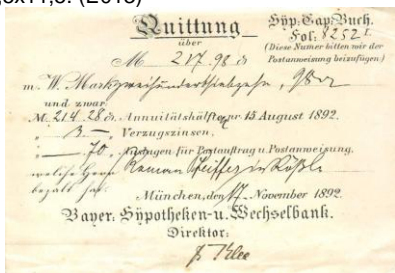 Quittung
über
M 217.98 ₰
Hyp: Cap: Buch.
Fol: 8252 I
(Diese Numer bitten wir der
Postanweisung beizufügen)
m. W. Mark zweihundertsiebzehn, 98
und zwar
M. 214.28 ₰. Annuitätshälfte pr 15 August 1892.
" 3.—, " Verzugszinsen,
" —. 70, " Auslagen für Postauftrag u. Postanweisung,
welche Herr Pfeiffer in
bezahlt hat.
München, den 17. November 1892.
Bayer. Hypotheken- u. Wechselbank.
Direktor: